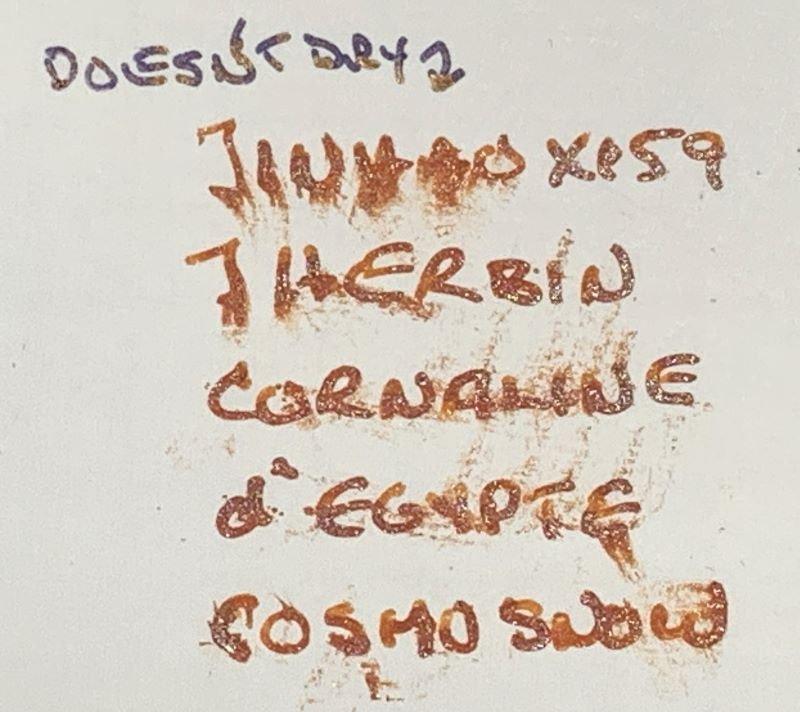 DOESN'T DRY?
JINHAO X159
J HERBIN
CORNALINE
d'EGYPTE
COSMO SNOW